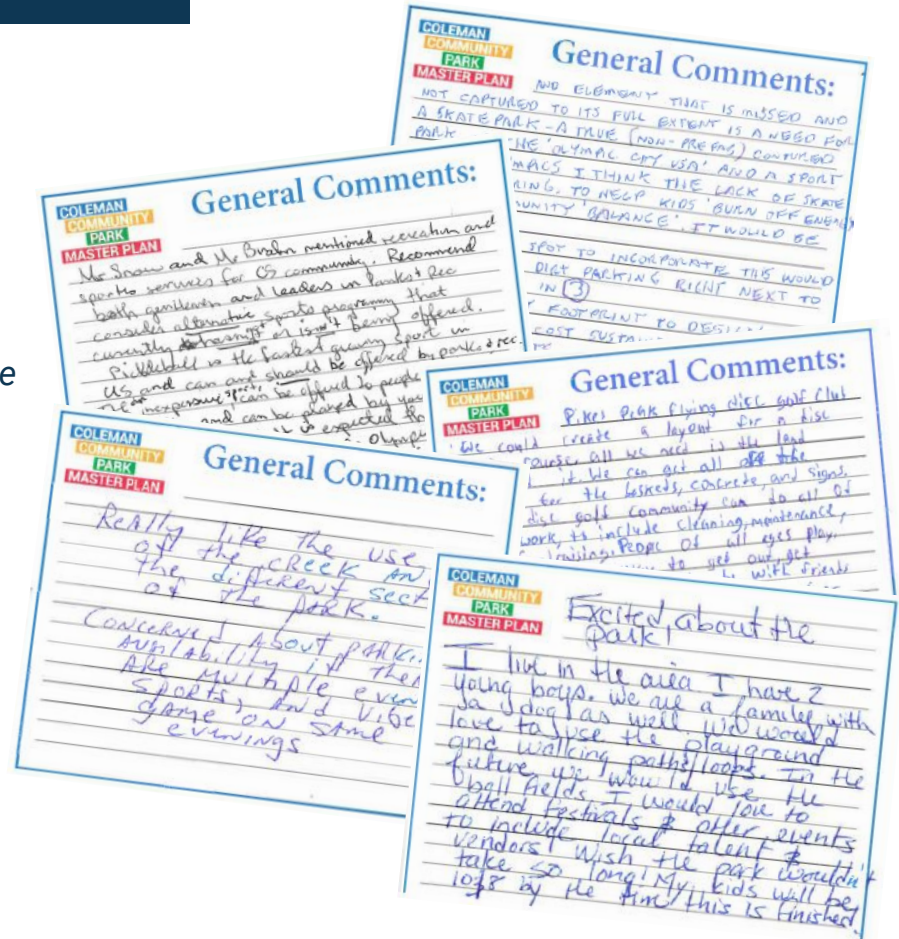 COLEMAN
COMMUNITY
PARK
MASTER PLAN
General Comments:
AND ELEMENT THAT IS MISSED AND
NOT CAPTURED TO ITS FULL EXTENT IS A NEED FOR
A SKATE PARK - A TRUE (NON-PREFAB) CONTURED
PARK
'OLYMPIC CITY USA' AND A SPORT
I THINK THE LACK OF SKATE
TO HELP KIDS 'BURN OFF ENERGY
'BALANCE'. IT WOULD BE
SPOT TO INCORPORATE THIS WOULD
DIRT PARKING RIGHT NEXT TO
IN 3
FOOTPRINT TO
COST
COLEMAN
COMMUNITY
PARK
MASTER PLAN
General Comments:
Mr Snow and Mr mentioned recreation and
sports services for CS community. Recommend
both gentlemen and leaders in Parks & Rec
consider alternative sports programming that
currently or isn't being offered.
Pickleball is the fastest growing sport in
US and can and should be offered by parks & rec.
inexpensive sport, can be offered to people
and can be played by
it is expected
e
COLEMAN
COMMUNITY
PARK
MASTER PLAN
General Comments:
Pikes Peak flying disc golf Club
We could create a layout for a disc
course, all we need is the land
it. We can get all of the
the baskets, concrete, and signs.
disc golf community can do all of
work, to include cleaning, maintenance,
People of all ages play,
to get out, get
with friends
COLEMAN
COMMUNITY
PARK
MASTER PLAN
General Comments:
Really like the use
of the creek
the different
of the park.
Concerned about
availability if
are multiple
sports, and
game on same
evenings
COLEMAN
COMMUNITY
PARK
MASTER PLAN
Excited about the
park!
I live in the area I have 2
young boys. We are a family with
a dog as well we would
love to use the playground
and walking paths/loops. In the
future we would use the
ball fields. I would love to
attend festivals & other events
to include local talent &
vendors! Wish the park wouldn't
take so long! My kids will be
10 & 8 by the time this is finished.